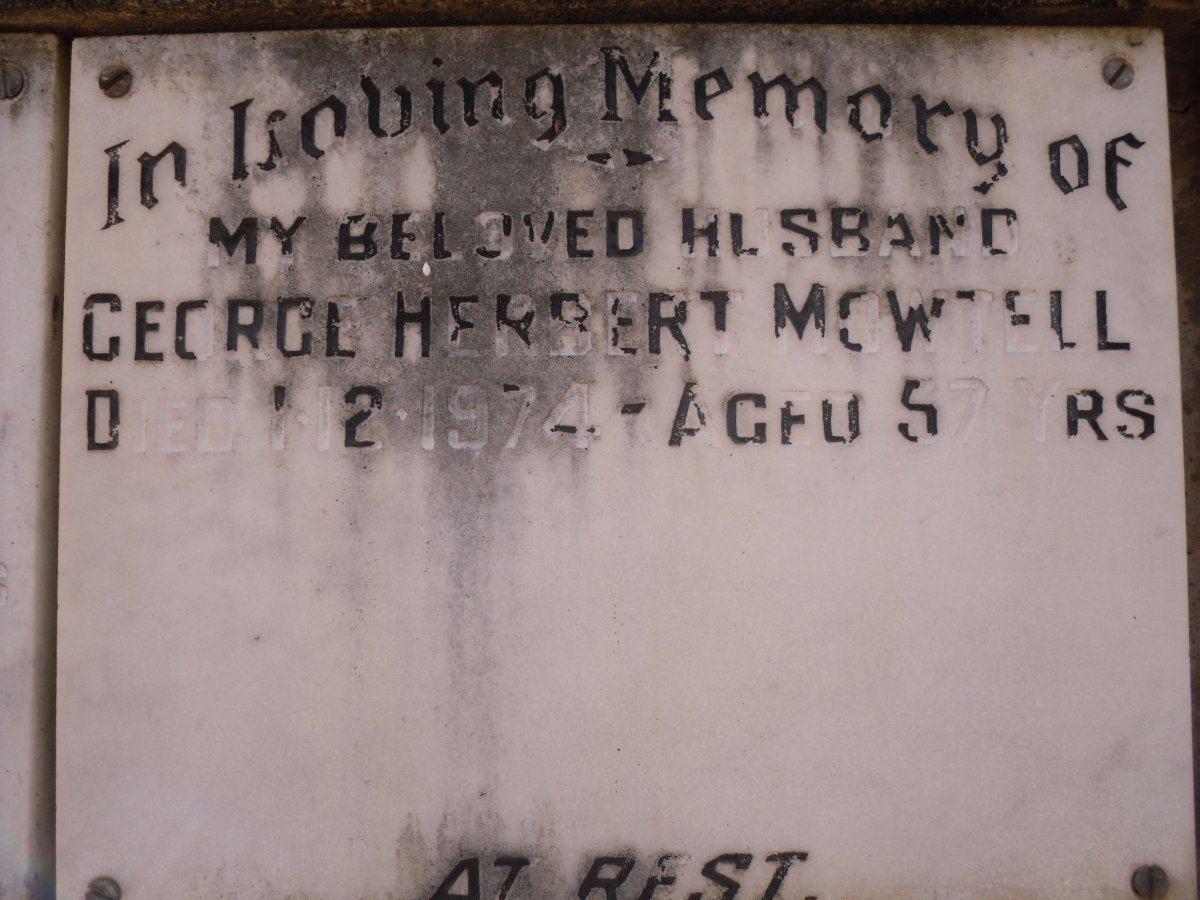 In Loving Memory of
MY BELOVED HUSBAND
GEORGE HERBERT MOWTELL
DIED 1·12·1974 - AGED 57 YRS
AT REST.